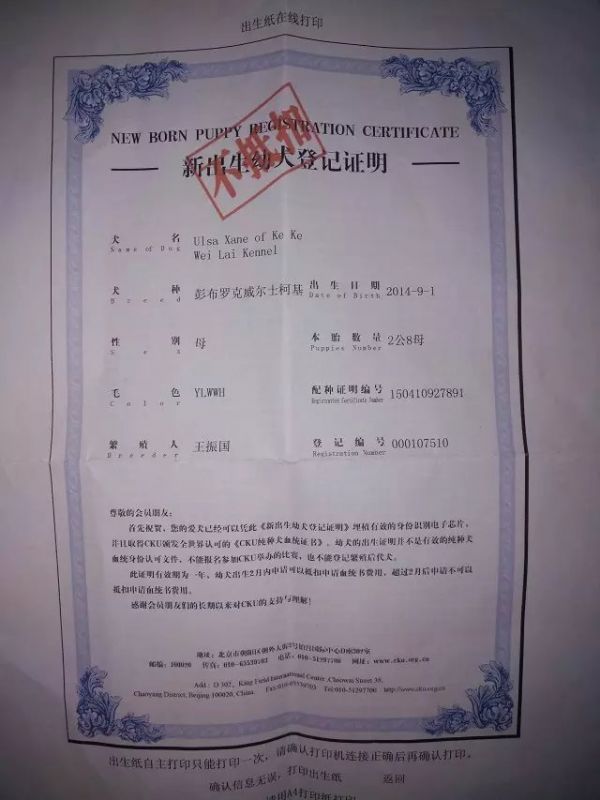 出生纸在线打印
NEW BORN PUPPY REGISTRATION CERTIFICATE
新出生幼犬登记证明
不抵扣
犬名 Ulsa Xane of Ke Ke
Name of Dog Wei Lai Kennel
犬种 彭布罗克威尔士柯基 出生日期 2014-9-1
Breed Date of Birth
性别 母 本胎数量 2公8母
Sex Puppies Number
毛色 YLWWH 配种证明编号 150410927891
Color Registration Certificate Number
繁殖人 王振国 登记编号 000107510
Breeder Registration Number
尊敬的会员朋友:
首先祝贺,您的爱犬已经可以凭此《新出生幼犬登记证明》埋植有效的身份识别电子芯片,
并且取得CKU颁发全世界认可的《CKU纯种犬血统证书》。幼犬的出生证明并不是有效的纯种犬
血统身份认可文件,不能报名参加CKU举办的比赛,也不能登记繁殖后代犬。
此证明有效期为一年,幼犬出生2月内申请可以抵扣申请血统书费用,超过2月后申请不可以
抵扣申请血统书费用。
感谢会员朋友们的长期以来对CKU的支持与理解!
地址:北京市朝阳区朝外大街
邮编:100020 传真:010-65539703 电话:010-51297700 网址:www.cku.org.cn
Add: D 302, King Field International Center, Chaowai Street
Chaoyang District, Beijing 100020, China. Fax:010-65539703 Tel:010-51297700 http://www.cku.org.cn
出生纸自主打印只能打印一次,请确认打印机连接正确后再确认打印。
确认信息无误,打印出生纸 返回
请用A4打印纸打印